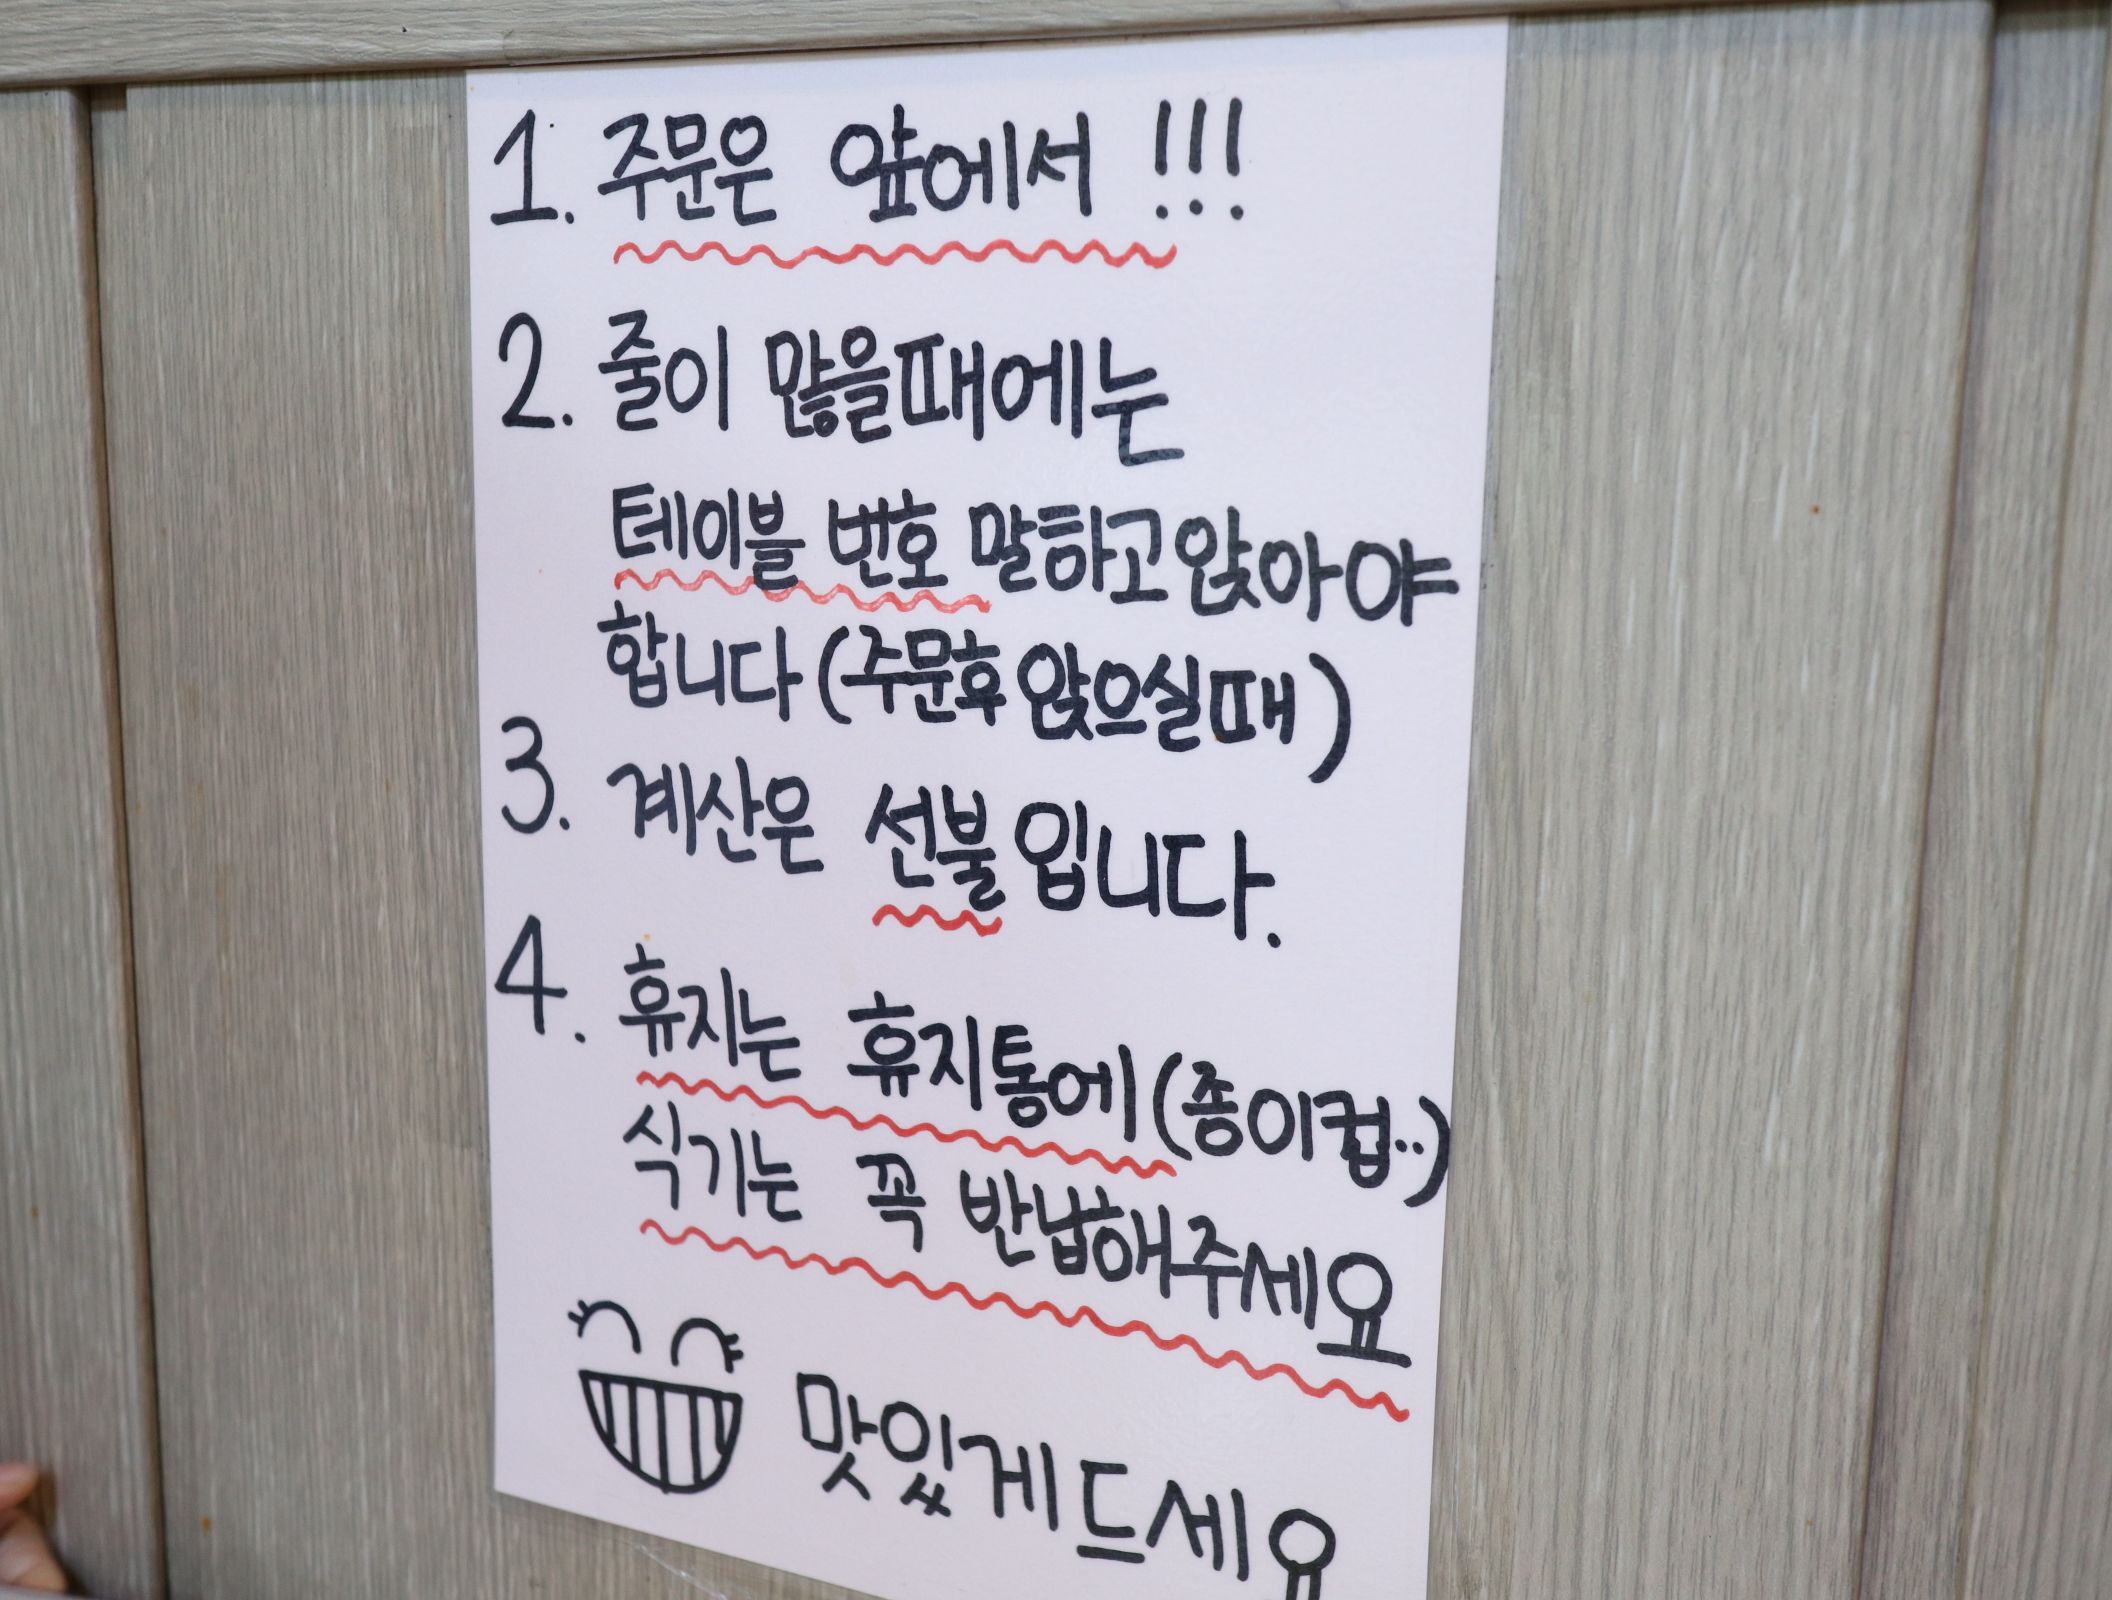 1. 주문은 앞에서 !!!
2. 줄이 많을때에는
테이블 번호 말하고앉아야
합니다 (주문후 앉으실때)
3. 계산은 선불입니다.
4. 휴지는 휴지통에(종이컵..)
식기는 꼭 반납해주세요
맛있게드세요